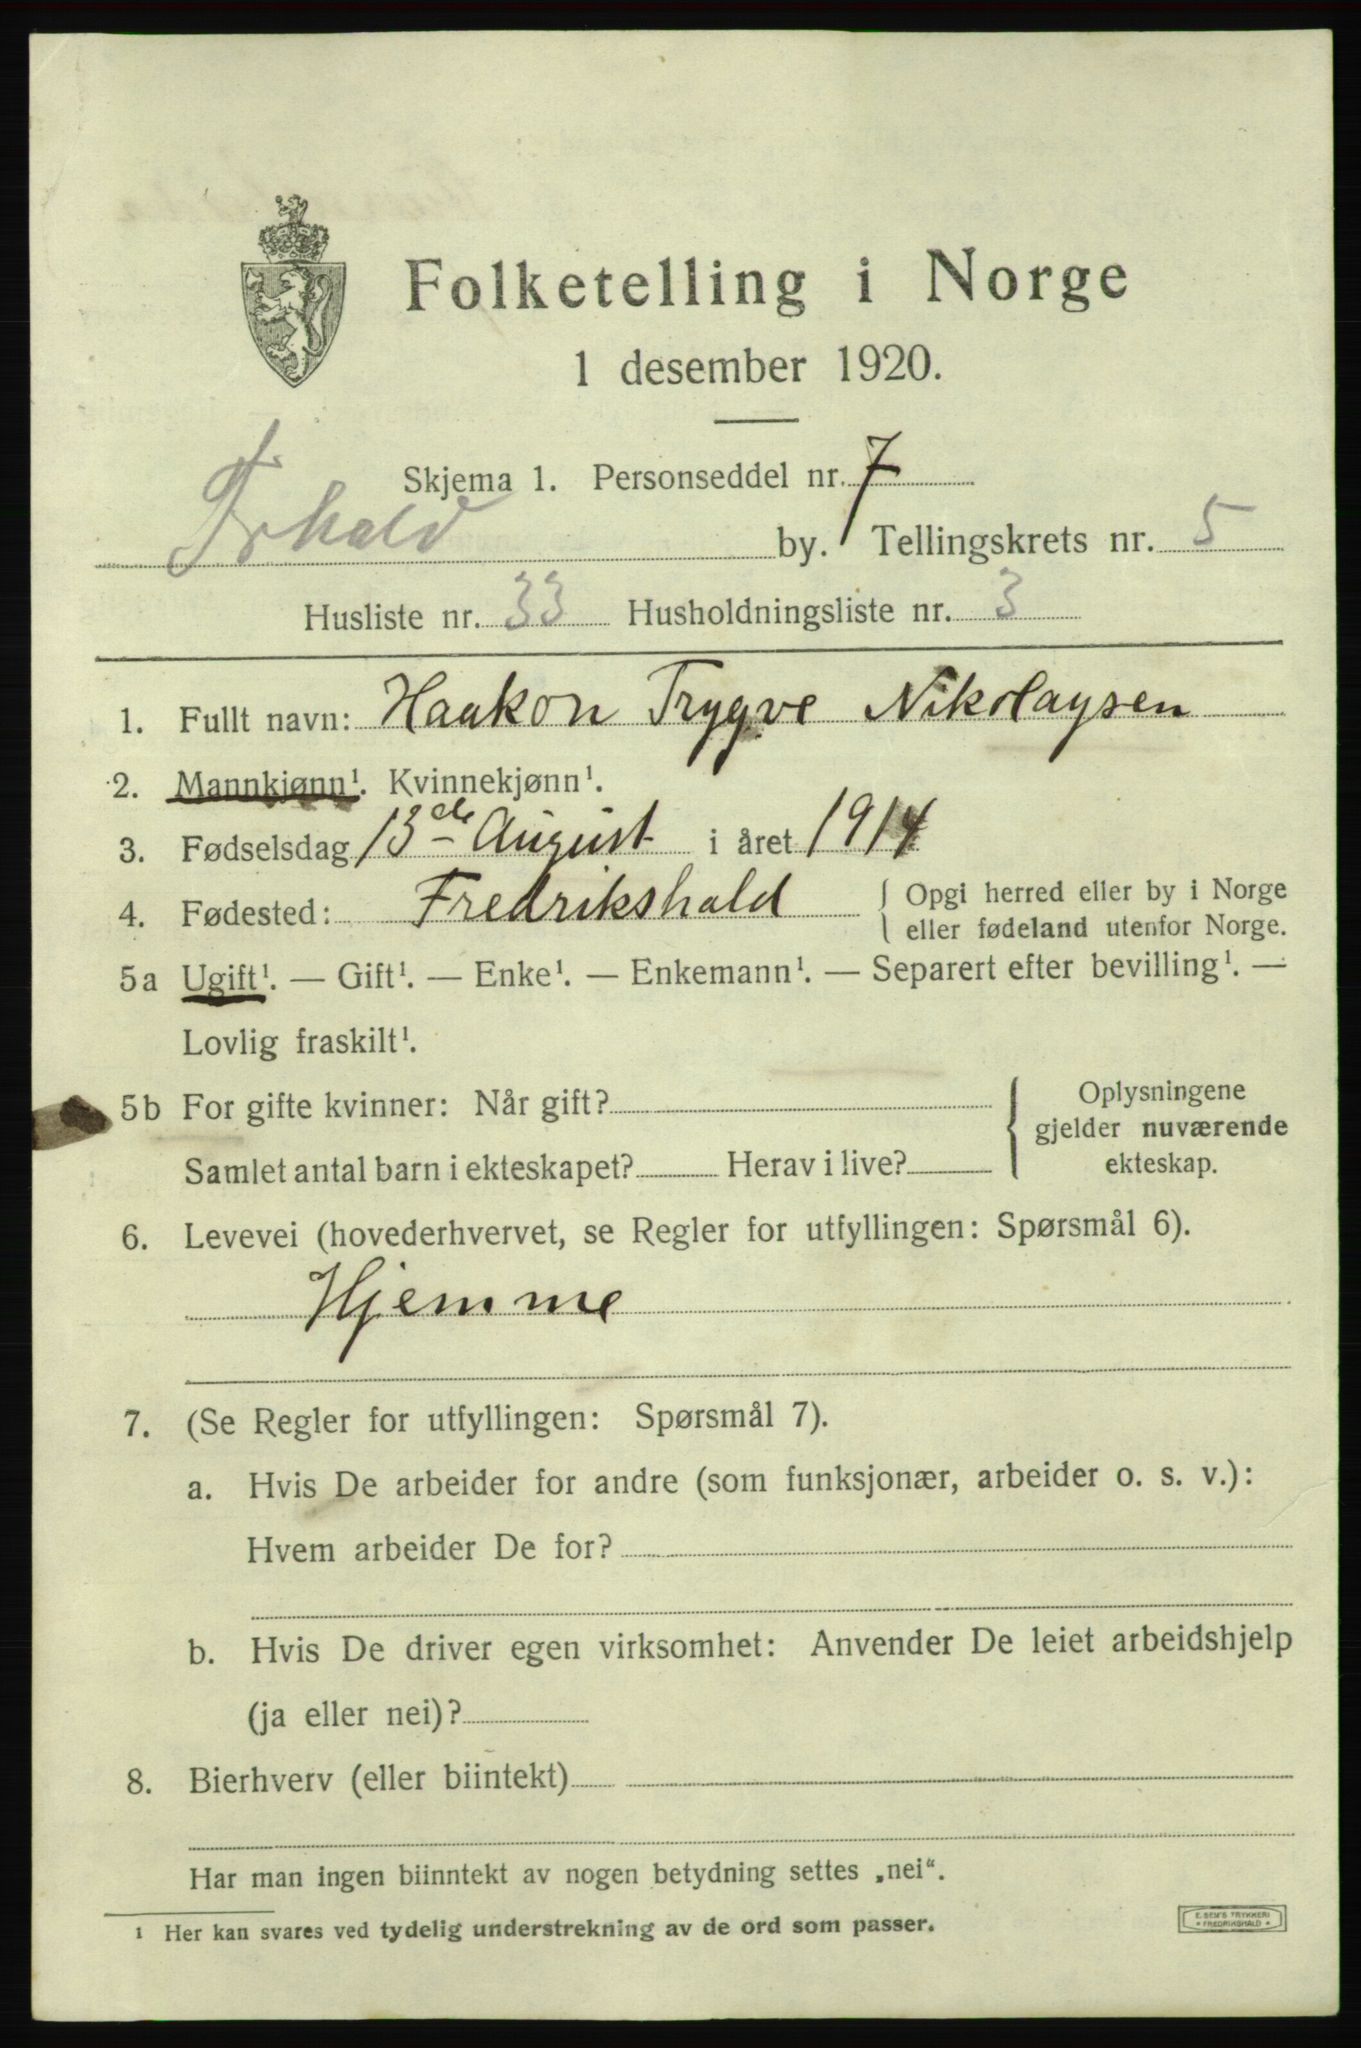 Folketelling i Norge
1 desember 1920.
Skjema 1. Personseddel nr. 7
Frhald by. Tellingskrets nr. 5
Husliste nr. 33 Husholdningsliste nr. 3
1. Fullt navn: Haakon Trygve Nikolaysen
2. Mannkjønn¹. Kvinnekjønn¹.
3. Fødselsdag 13de August i året 1914
4. Fødested: Fredrikshald { Opgi herred eller by i Norge
eller fødeland utenfor Norge.
5a Ugift¹. — Gift¹. — Enke¹. — Enkemann¹. — Separert efter bevilling¹. —
Lovlig fraskilt¹.
5b For gifte kvinner: Når gift? { Oplysningene
gjelder nuværende
Samlet antal barn i ekteskapet? Herav i live? ekteskap.
6. Levevei (hovederhvervet, se Regler for utfyllingen: Spørsmål 6).
Hjemme
7. (Se Regler for utfyllingen: Spørsmål 7).
a. Hvis De arbeider for andre (som funksjonær, arbeider o. s. v.):
Hvem arbeider De for?
b. Hvis De driver egen virksomhet: Anvender De leiet arbeidshjelp
(ja eller nei)?
8. Bierhverv (eller biintekt)
Har man ingen biinntekt av nogen betydning settes „nei“.
¹ Her kan svares ved tydelig understrekning av de ord som passer.
E. SEM'S TRYKKERI
* FREDRIKSHALD *